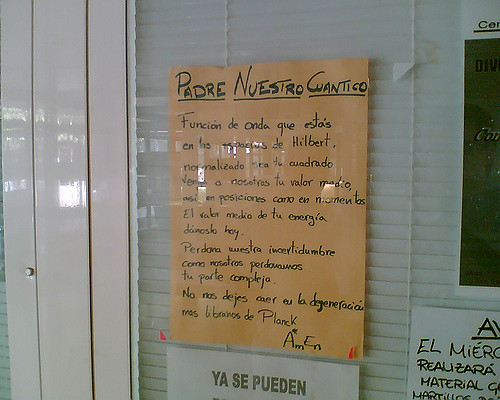 PADRE NUESTRO CUANTICO
Función de onda que estás
en los espacios de Hilbert,
normalizado sea tu cuadrado
venga a nosotros tu valor medio,
así en posiciones como en momentos
El valor medio de tu energía
dánoslo hoy.
Perdona nuestra incertidumbre
como nosotros perdonamos
tu parte compleja.
No nos dejes caer en la degeneración
mas libranos de Planck
AmEn
YA SE PUEDEN
Cen
DIV
AV
EL MIÉRC
REALIZARÁ
MATERIAL
MARTILLOS